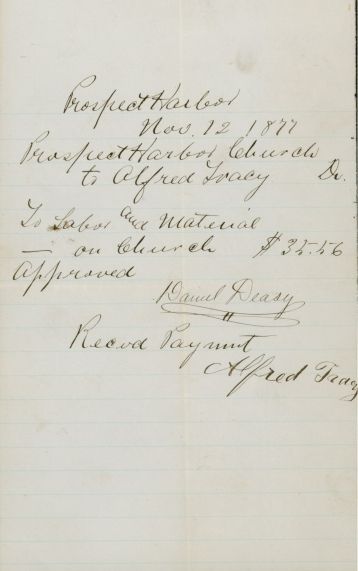 Prospect Harbor
Nov. 12 1877
Prospect Harbor Church
to Alfred Tracy Dr.
To Labor and Material
— on Church $35.56
Approved
Daniel Deasy
Recvd Paymnt
Alfred Tracy